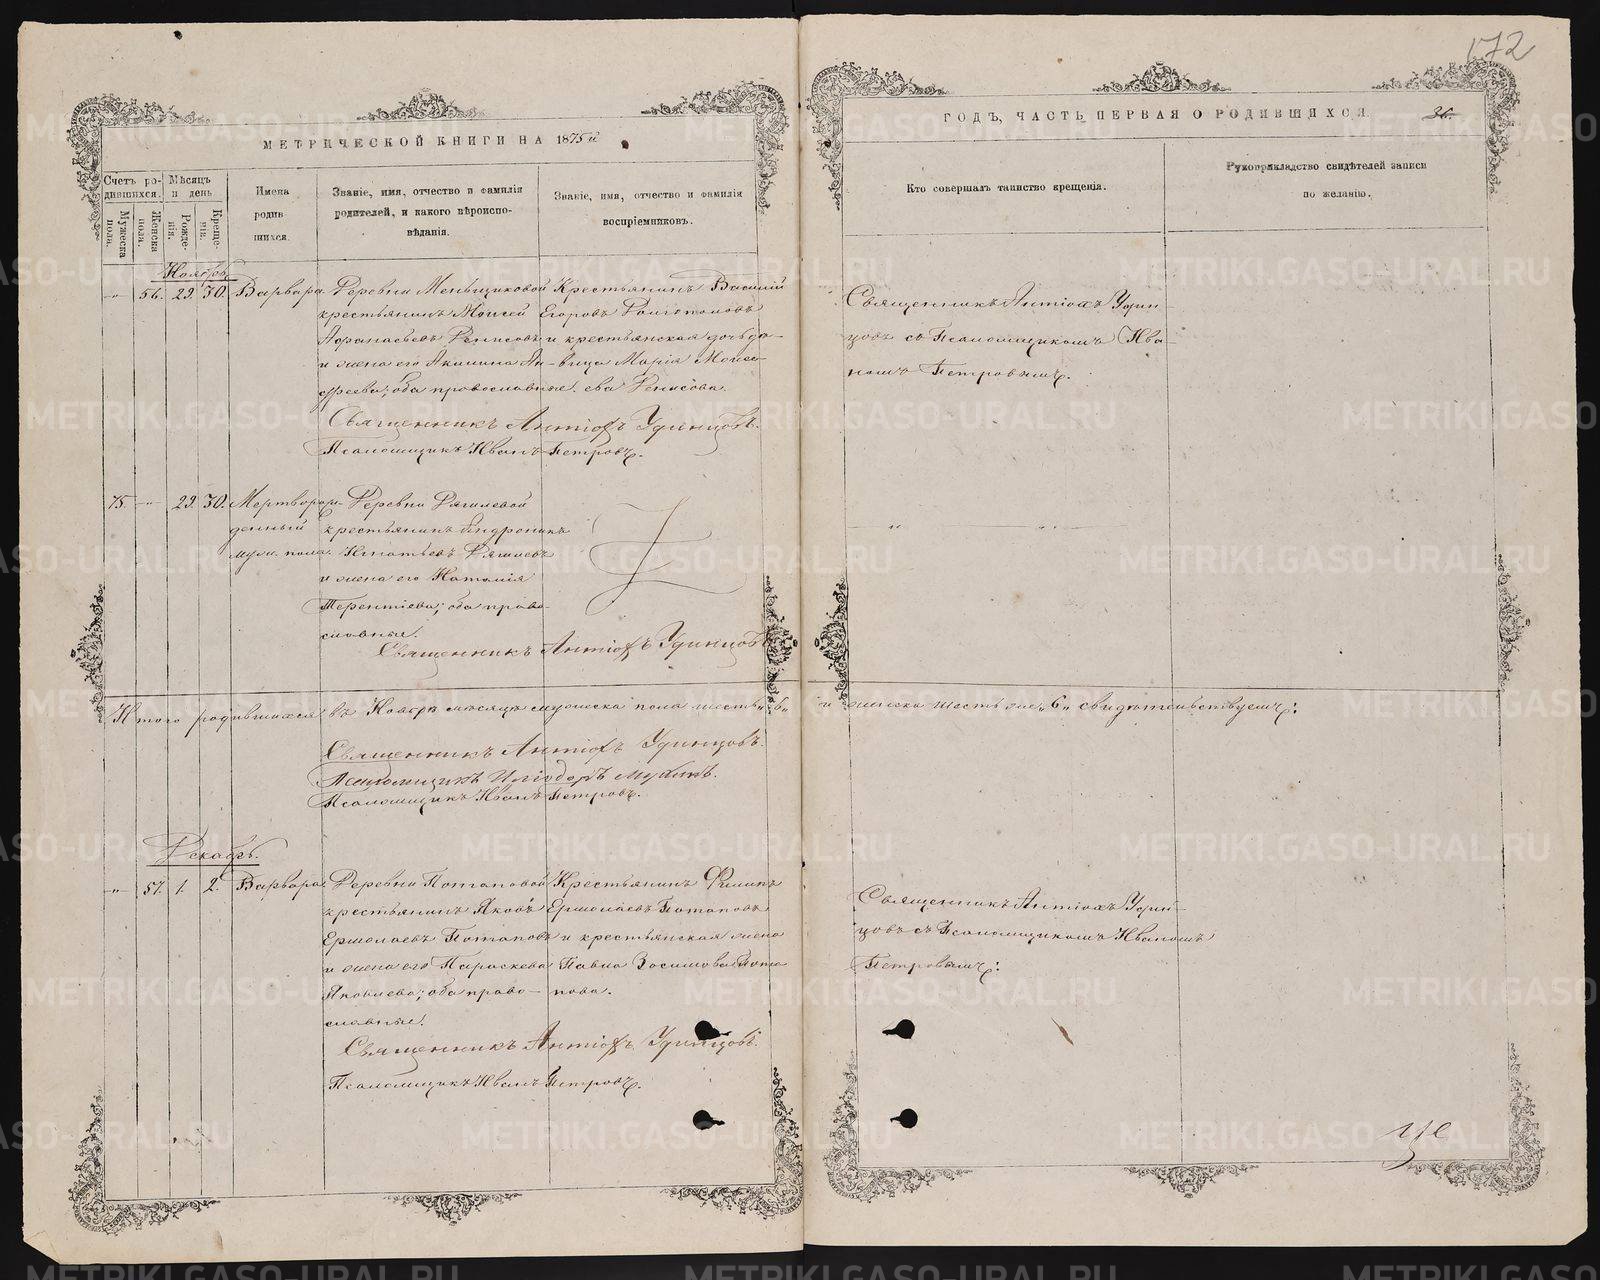 172
МЕТРИЧЕСКОЙ КНИГИ НА 1875й
ГОДЪ, ЧАСТЬ ПЕРВАЯ О РОДИВШИХСЯ.
36.
Счетъ родившихся.
Мужеска пола.
Женска пола.
Мѣсяцъ и день
Рожденія.
Крещенія.
Имена родившихся.
Званіе, имя, отчество и фамилія
родителей, и какого вѣроиспо-
вѣданія.
Званіе, имя, отчество и фамилія
воспріемниковъ.
Кто совершалъ таинство крещенія.
Рукоприкладство свидѣтелей записи
по желанію.
Ноябрь
56. 29. 30. Варвара
Деревни Меньщиковой
крестьянинъ Моисей
Афанасьевъ Денисовъ
и жена его Акилина Ан-
дреева; оба православные.
Крестьянинъ Василій
Егоровъ
и крестьянская дочь дѣ-
вица Марія Моисе-
ева Денисова.
Священникъ Антіохъ Удинцовъ.
Псаломщикъ Иванъ Петровъ.
Священникъ Антіохъ Удин-
цовъ съ Псаломщикомъ Ива-
номъ Петровымъ.
75. 29. 30. Мертворож-
денный
муж. пола.
Деревни
крестьянинъ Андроникъ
Игнатьевъ
и жена его Наталія
Терентіева; оба право-
славные.
Священникъ Антіохъ Удинцовъ
Итого родившихся въ Ноябрѣ мѣсяцѣ мужеска пола шесть „6„ и женска шесть же „6„ свидѣтельствуемъ:
Священникъ Антіохъ Удинцовъ.
Псаломщикъ
Псаломщикъ Иванъ Петровъ.
Декабрь.
57. 1. 2. Варвара
Деревни Потаповой
крестьянинъ Яковъ
Ермолаевъ Потаповъ
и жена его Параскева
Яковлева; оба право-
славные.
Крестьянинъ Филипъ
Ермолаевъ Потаповъ
и крестьянская жена
Павла Зосимова Пота
пова.
Священникъ Антіохъ Удинцовъ.
Псаломщикъ Иванъ Петровъ.
Священникъ Антіохъ Удин-
цовъ съ Псаломщикомъ Иваномъ
Петровымъ:
METRIKI.GASO-URAL.RU